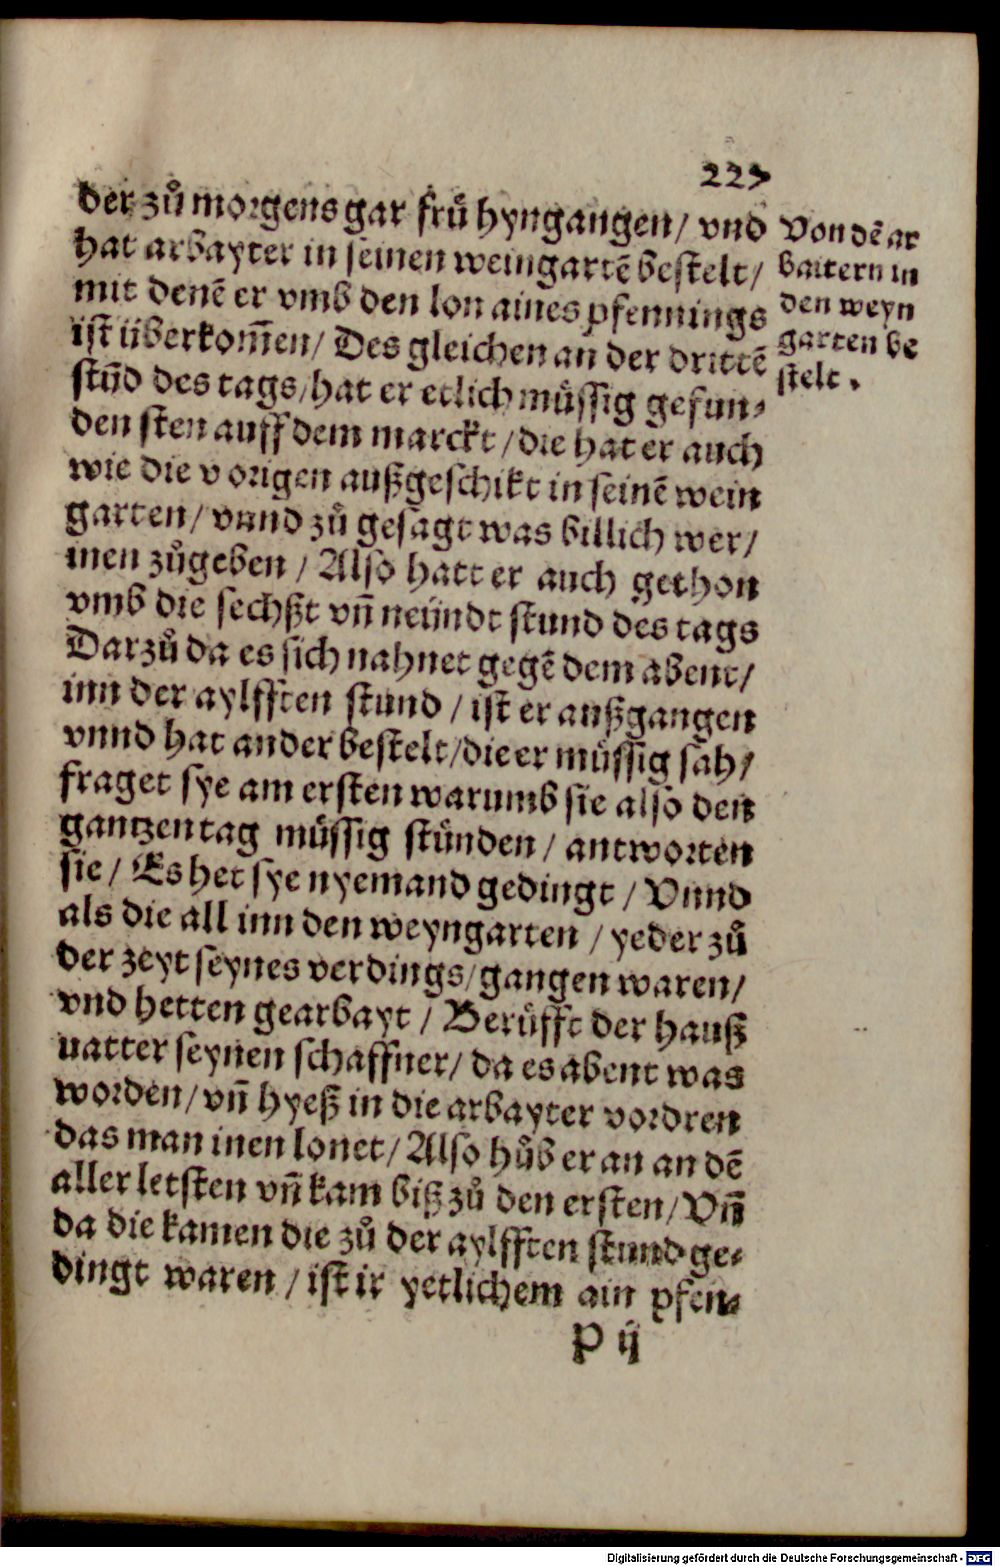 227
der zů morgens gar frů hyngangen / vnd
hat arbayter in seinen weingartē bestelt /
mit denē er vmb den lon aines pfennings
ist überkom̄en / Des gleichen an der drittē
stūd des tags / hat er etlich můssig gefun⸗
den sten auff dem marckt / die hat er auch
wie die vorigen außgeschikt in seinē wein
garten / vnnd zů gesagt was billich wer /
inen zůgeben / Also hatt er auch gethon
vmb die sechßt vn̄ neündt stund des tags
Darzů da es sich nahnet gegē dem abent /
inn der aylfften stund / ist er außgangen
vnnd hat ander bestelt / die er můssig sah /
fraget sye am ersten warumb sie also den
gantzen tag můssig stůnden / antworten
sie / Es het sye nyemand gedingt / Vnnd
als die all inn den weyngarten / yeder zů
der zeyt seynes verdings / gangen waren /
vnd hetten gearbayt / Berůfft der hauß
uatter seynen schaffner / da es abent was
worden / vn̄ hyeß in die arbayter vordren
das man inen lonet / Also hůb er an an dē
aller letsten vn̄ kam biß zů den ersten / Vn̄
da die kamen die zů der aylfften stund ge⸗
dingt waren / ist ir yetlichem ain pfen⸗
P ij
Von dē ar
baitern in
den weyn
garten be
stelt.
Digitalisierung gefördert durch die Deutsche Forschungsgemeinschaft - DFG